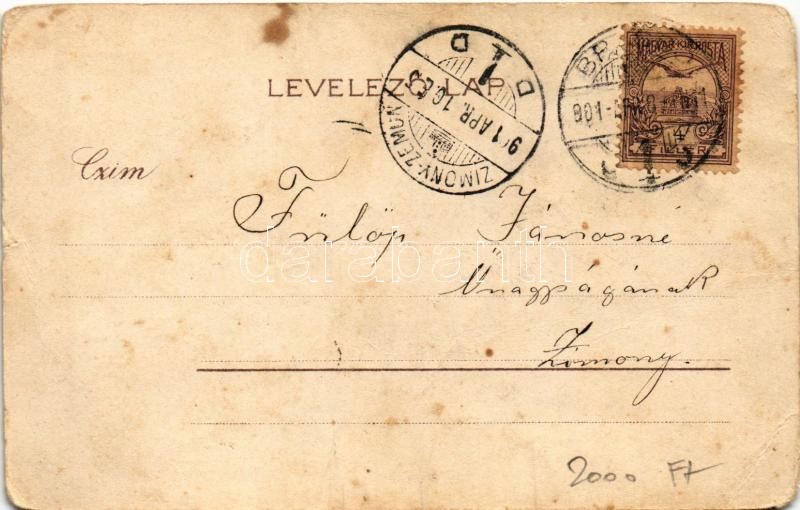 LEVELEZŐ-LAP.
Czim
Fülöp Jánosné
Őnagyságának
Zimony.
ZIMONY-ZEMUN
901 APR.
MAGYAR KIR. POSTA
4
darabanth
2000 Ft